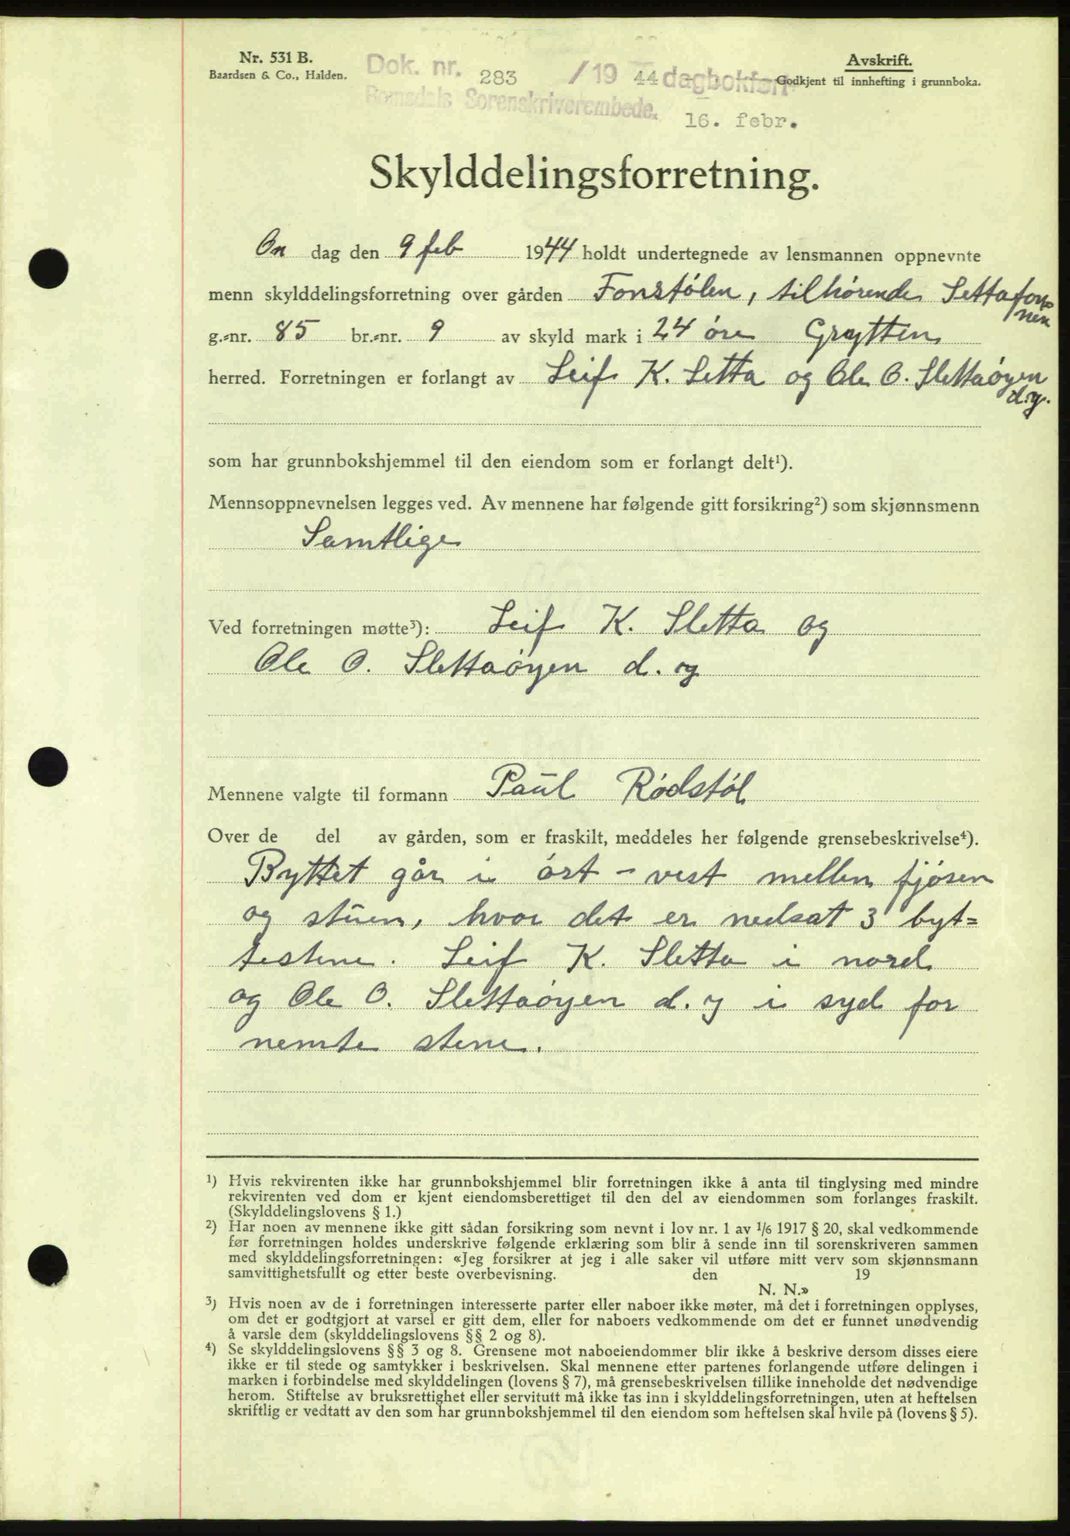 Nr. 531 B.
Baardsen & Co., Halden.
Dok. nr. 283 /19 44 dagbokført
Romsdals Sorenskriverembede.
16. febr.
Avskrift.
Godkjent til innhefting i grunnboka.
Skylddelingsforretning.
On dag den 9 feb 1944 holdt undertegnede av lensmannen oppnevnte
menn skylddelingsforretning over gården Fonstølen, tilhørende Settafon-
nen
g.-nr. 85 br.-nr. 9 av skyld mark i 24 øre Grytten
herred. Forretningen er forlangt av Leif K. Setta og Ole O. Slettaøyen
d.y.
som har grunnbokshjemmel til den eiendom som er forlangt delt¹).
Mennsoppnevnelsen legges ved. Av mennene har følgende gitt forsikring²) som skjønnsmenn
Samtlige
Ved forretningen møtte³): Leif K. Sletta og
Ole O. Slettaöyen d. og
Mennene valgte til formann Paul Rødstøl
Over de del av gården, som er fraskilt, meddeles her følgende grensebeskrivelse⁴).
Byttet går i öst - vest mellem fjösen
og stuen, hvor det er nedsat 3 byt=
testene. Leif K. Sletta i nord
og Ole O. Slettaöyen d. y i syd for
nemte stene.
¹) Hvis rekvirenten ikke har grunnbokshjemmel blir forretningen ikke å anta til tinglysing med mindre
rekvirenten ved dom er kjent eiendomsberettiget til den del av eiendommen som forlanges fraskilt.
(Skylddelingslovens § 1.)
²) Har noen av mennene ikke gitt sådan forsikring som nevnt i lov nr. 1 av 1/6 1917 § 20, skal vedkommende
før forretningen holdes underskrive følgende erklæring som blir å sende inn til sorenskriveren sammen
med skylddelingsforretningen: «Jeg forsikrer at jeg i alle saker vil utføre mitt verv som skjønnsmann
samvittighetsfullt og etter beste overbevisning. den 19
N. N.»
³) Hvis noen av de i forretningen interesserte parter eller naboer ikke møter, må det i forretningen opplyses,
om det er godtgjort at varsel er gitt dem, eller for naboers vedkommende om det er funnet unødvendig
å varsle dem (skylddelingslovens §§ 2 og 8).
⁴) Se skylddelingslovens §§ 3 og 8. Grensene mot naboeiendommer blir ikke å beskrive dersom disses eiere
ikke er til stede og samtykker i beskrivelsen. Skal mennene etter partenes forlangende utføre delingen i
marken i forbindelse med skylddelingen (lovens § 7), må grensebeskrivelsen tillike inneholde det nødvendige
herom. Stiftelse av bruksrettighet eller servitutt må ikke tas inn i skylddelingsforretningen, uten at heftelsen
skriftlig er vedtatt av den som har grunnbokshjemmel til den eiendom som heftelsen skal hvile på (lovens § 5).